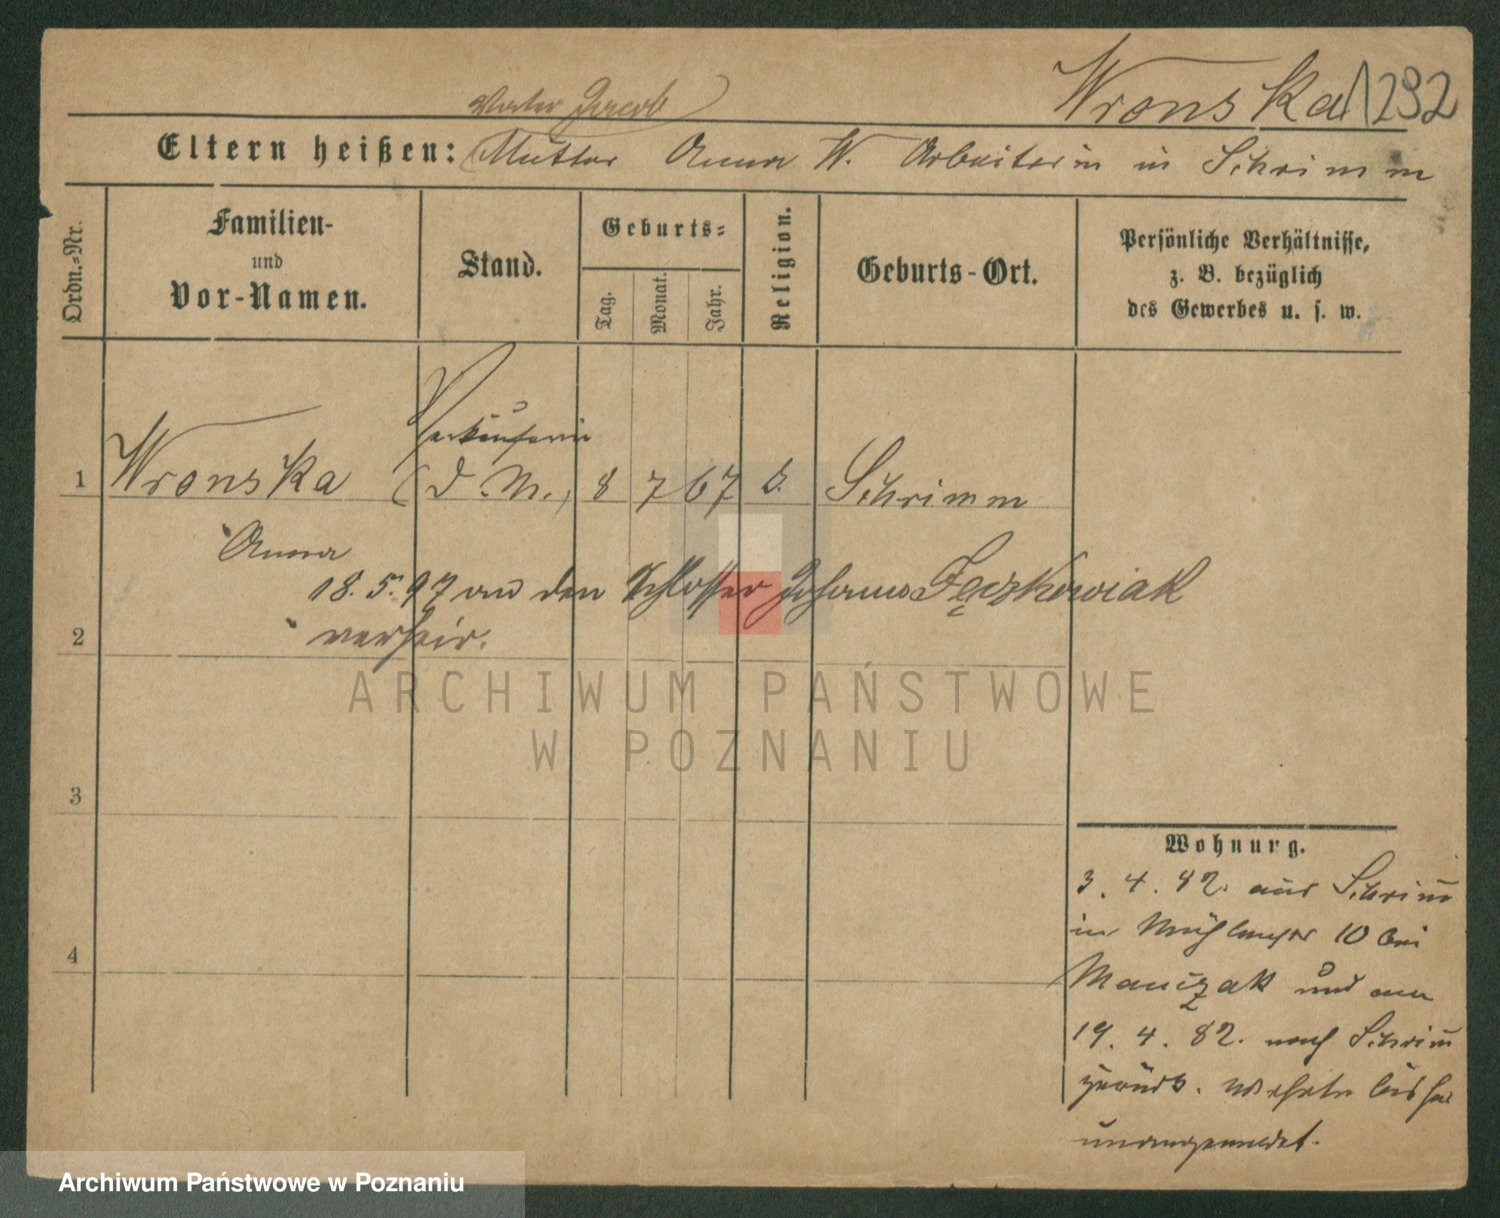 Wronska 1292
Vater Jacob
Eltern heißen: Mutter Anna W. Arbeiterin in Schrimm
Ordn.-Nr.
Familien-
und
Vor-Namen.
Stand.
Geburts-
Tag.
Monat.
Jahr.
Religion.
Geburts-Ort.
Persönliche Verhältnisse,
z. B. bezüglich
des Gewerbes u. s. w.
Verkäuferin
1 Wronska (d. M.) 8 7 67 Schrimm
Anna
18. 5. 97 an den Schlosser Johann Fęczkowiak
2 verheir.
ARCHIWUM PAŃSTWOWE
W POZNANIU
3
Wohnung.
3. 4. 92. aus Schrimm
in 10 bei
4
Manczak und am
19. 4. 82. nach Schrimm
zurück. wohnte bisher
unangemeldet.
Archiwum Państwowe w Poznaniu